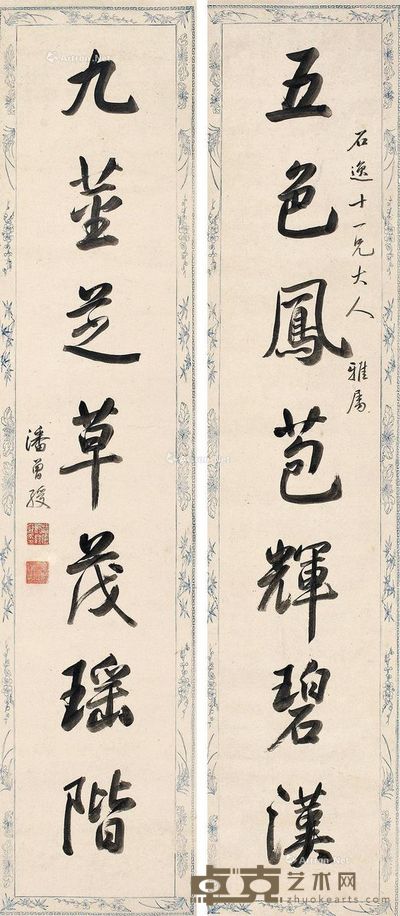 五色鳳苞輝碧漢
石逸十一兄大人 雅屬
九莖芝草茂瑤階
潘曾綬
卓克艺术网
zhuokearts.com